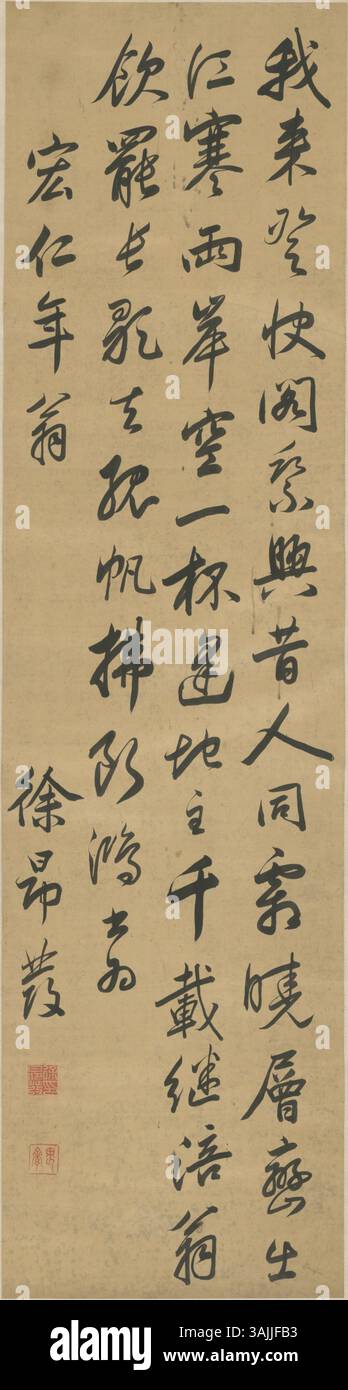 我來登快閣乘興昔人同霽曉層巒出
江寒兩岸空一杯逢地主千載繼涪翁
飲罷長歌去孤帆拂斷鴻書為
宏仁年翁
徐昂發
alamy
alamy
Image ID: 3AJJFB3
www.alamy.com